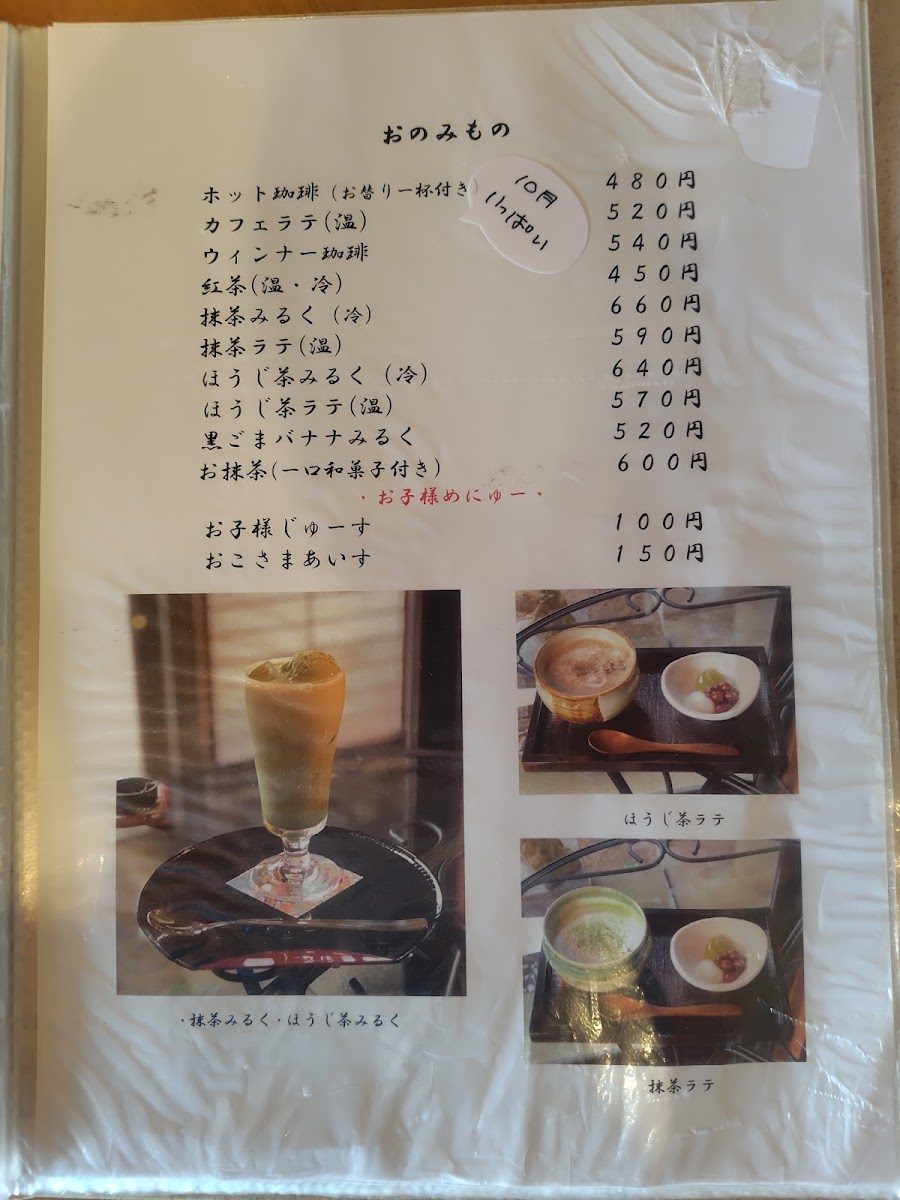 おのみもの
ホット珈琲(お替り一杯付き) 480円
10月
いっぱい
カフェラテ(温) 520円
ウィンナー珈琲 540円
紅茶(温・冷) 450円
抹茶みるく(冷) 660円
抹茶ラテ(温) 590円
ほうじ茶みるく(冷) 640円
ほうじ茶ラテ(温) 570円
黒ごまバナナみるく 520円
お抹茶(一口和菓子付き) 600円
・お子様めにゅー・
お子様じゅーす 100円
おこさまあいす 150円
ほうじ茶ラテ
・抹茶みるく・ほうじ茶みるく
抹茶ラテ